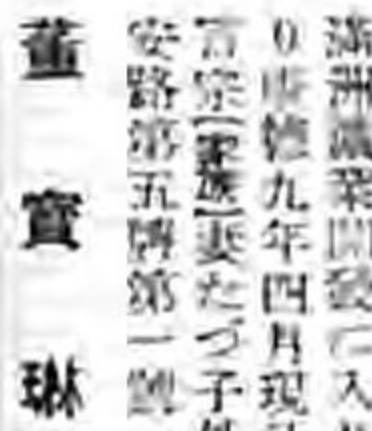 満洲鑛業開發に入
り康德九年四月現
言宗【家族】妻たづ子
安路第五牌第一號
董寶琳